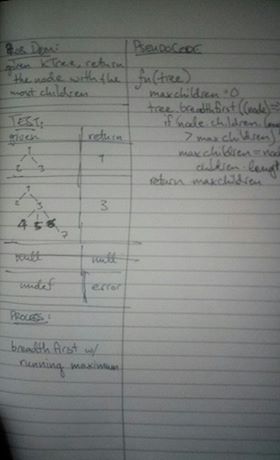 Prob Dom:
given KTree, return
the node with the
most children
TEST:
given return
1
2 3
1
1
2 3
4 5 6
7
3
null null
undef error
PROCESS:
breadth first w/
running maximum
PSEUDOCODE
fn(tree)
maxchildren = 0
tree.breadthfirst((node)=>
if(node.children.
> maxchildren)
maxchildren = node
children.length
return maxchildren